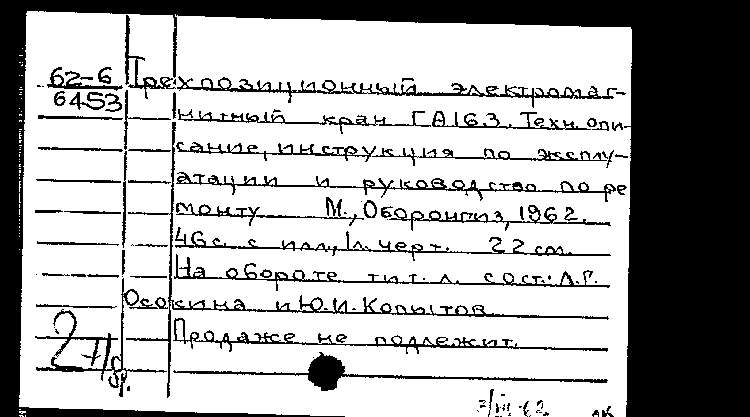 62-6
6453
Трехпозиционный электромаг-
нитный кран ГА163. Техн. опи-
сание, инструкция по эксплу-
атации и руководство по ре
монту М., Оборонгиз, 1962.
46с. с илл., 1л. черт. 22 см.
На обороте тит. л. сост.: Л.Г.
Осокина и Ю.И. Копытов
Продаже не подлежит.